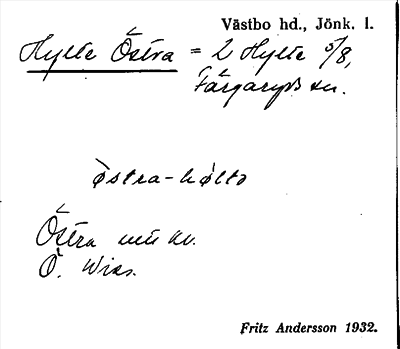 Västbo hd., Jönk. l.
Hylte Östra = 2 Hylte 5/8,
Färgaryds sn.
östra-hølto
Östra
Ö.
Fritz Andersson 1932.